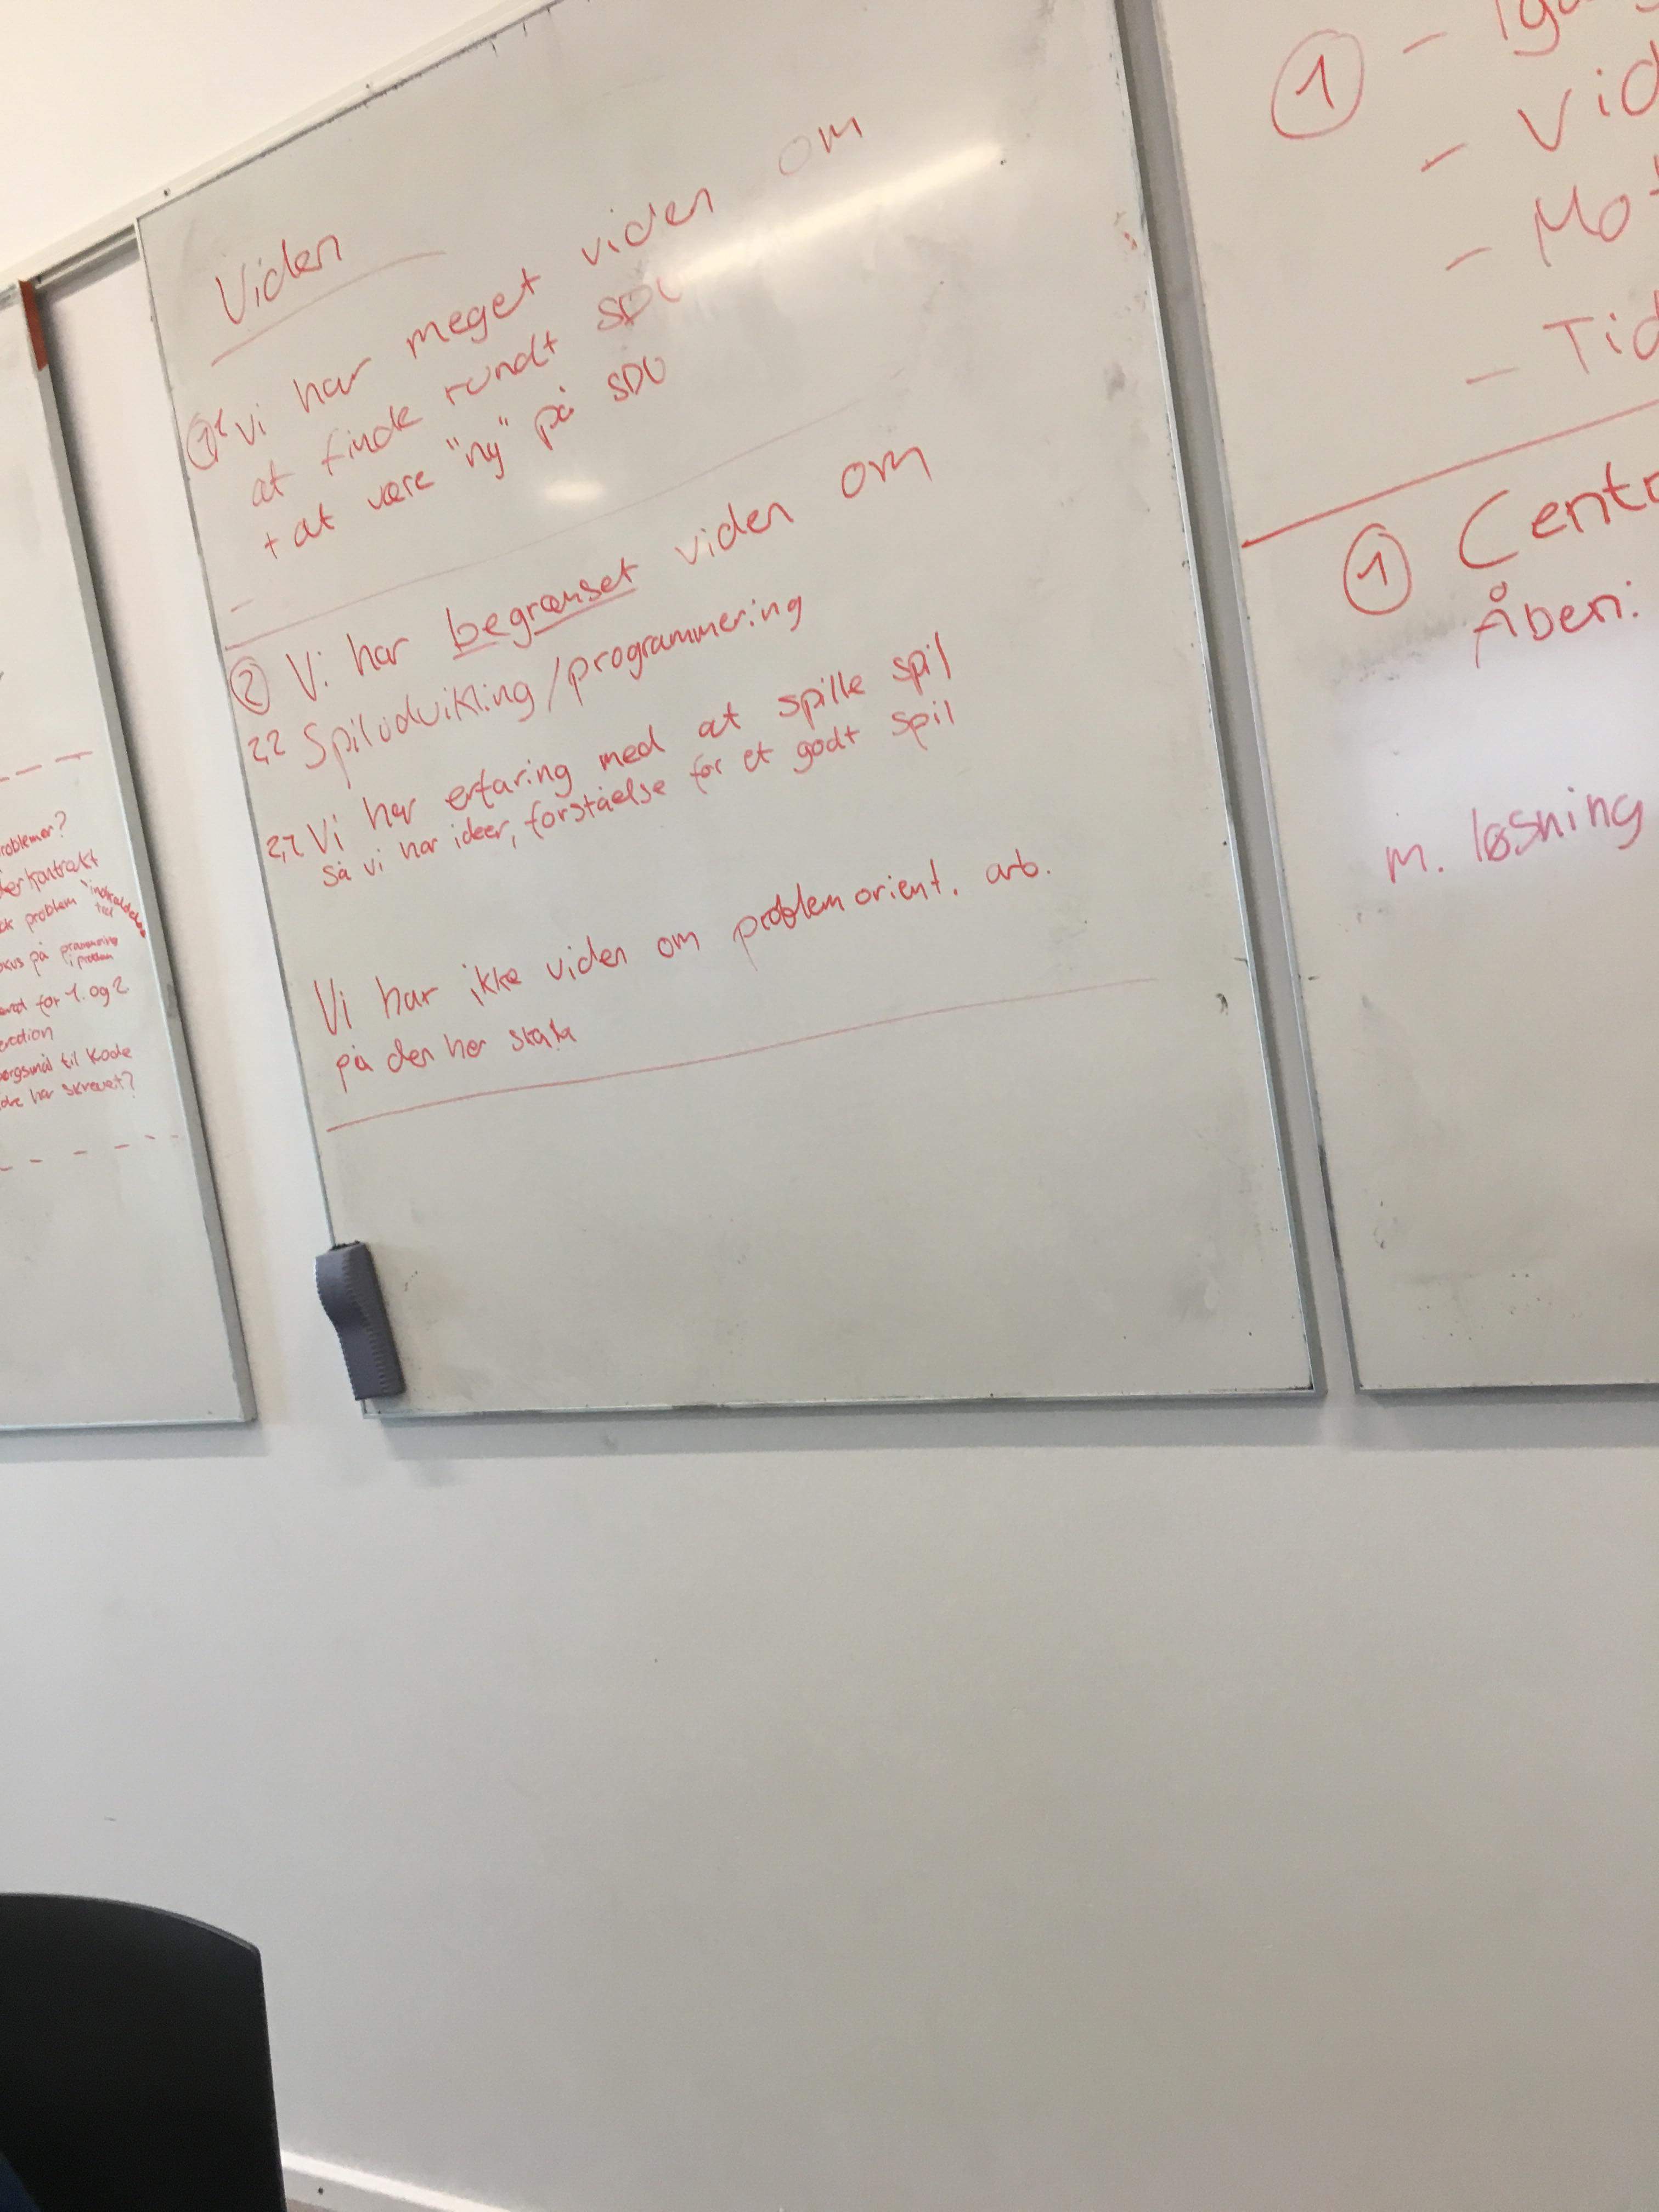 roblemer?
kontrakt
problem
på
for 1. og 2
til kode
har skrevet?
Viden
① Vi har meget viden om
at finde rundt SDU
+ at være "ny" på SDU
② Vi har begrænset viden om
2,2 Spiludvikling/programmering
Vi har erfaring med at spille spil
så vi har ideer, forståelse for et godt spil
Vi har ikke viden om problemorient. arb.
på den her skala
① -
- Vid
- Mot
- Tid
① Centr
Åben:
m. løsning